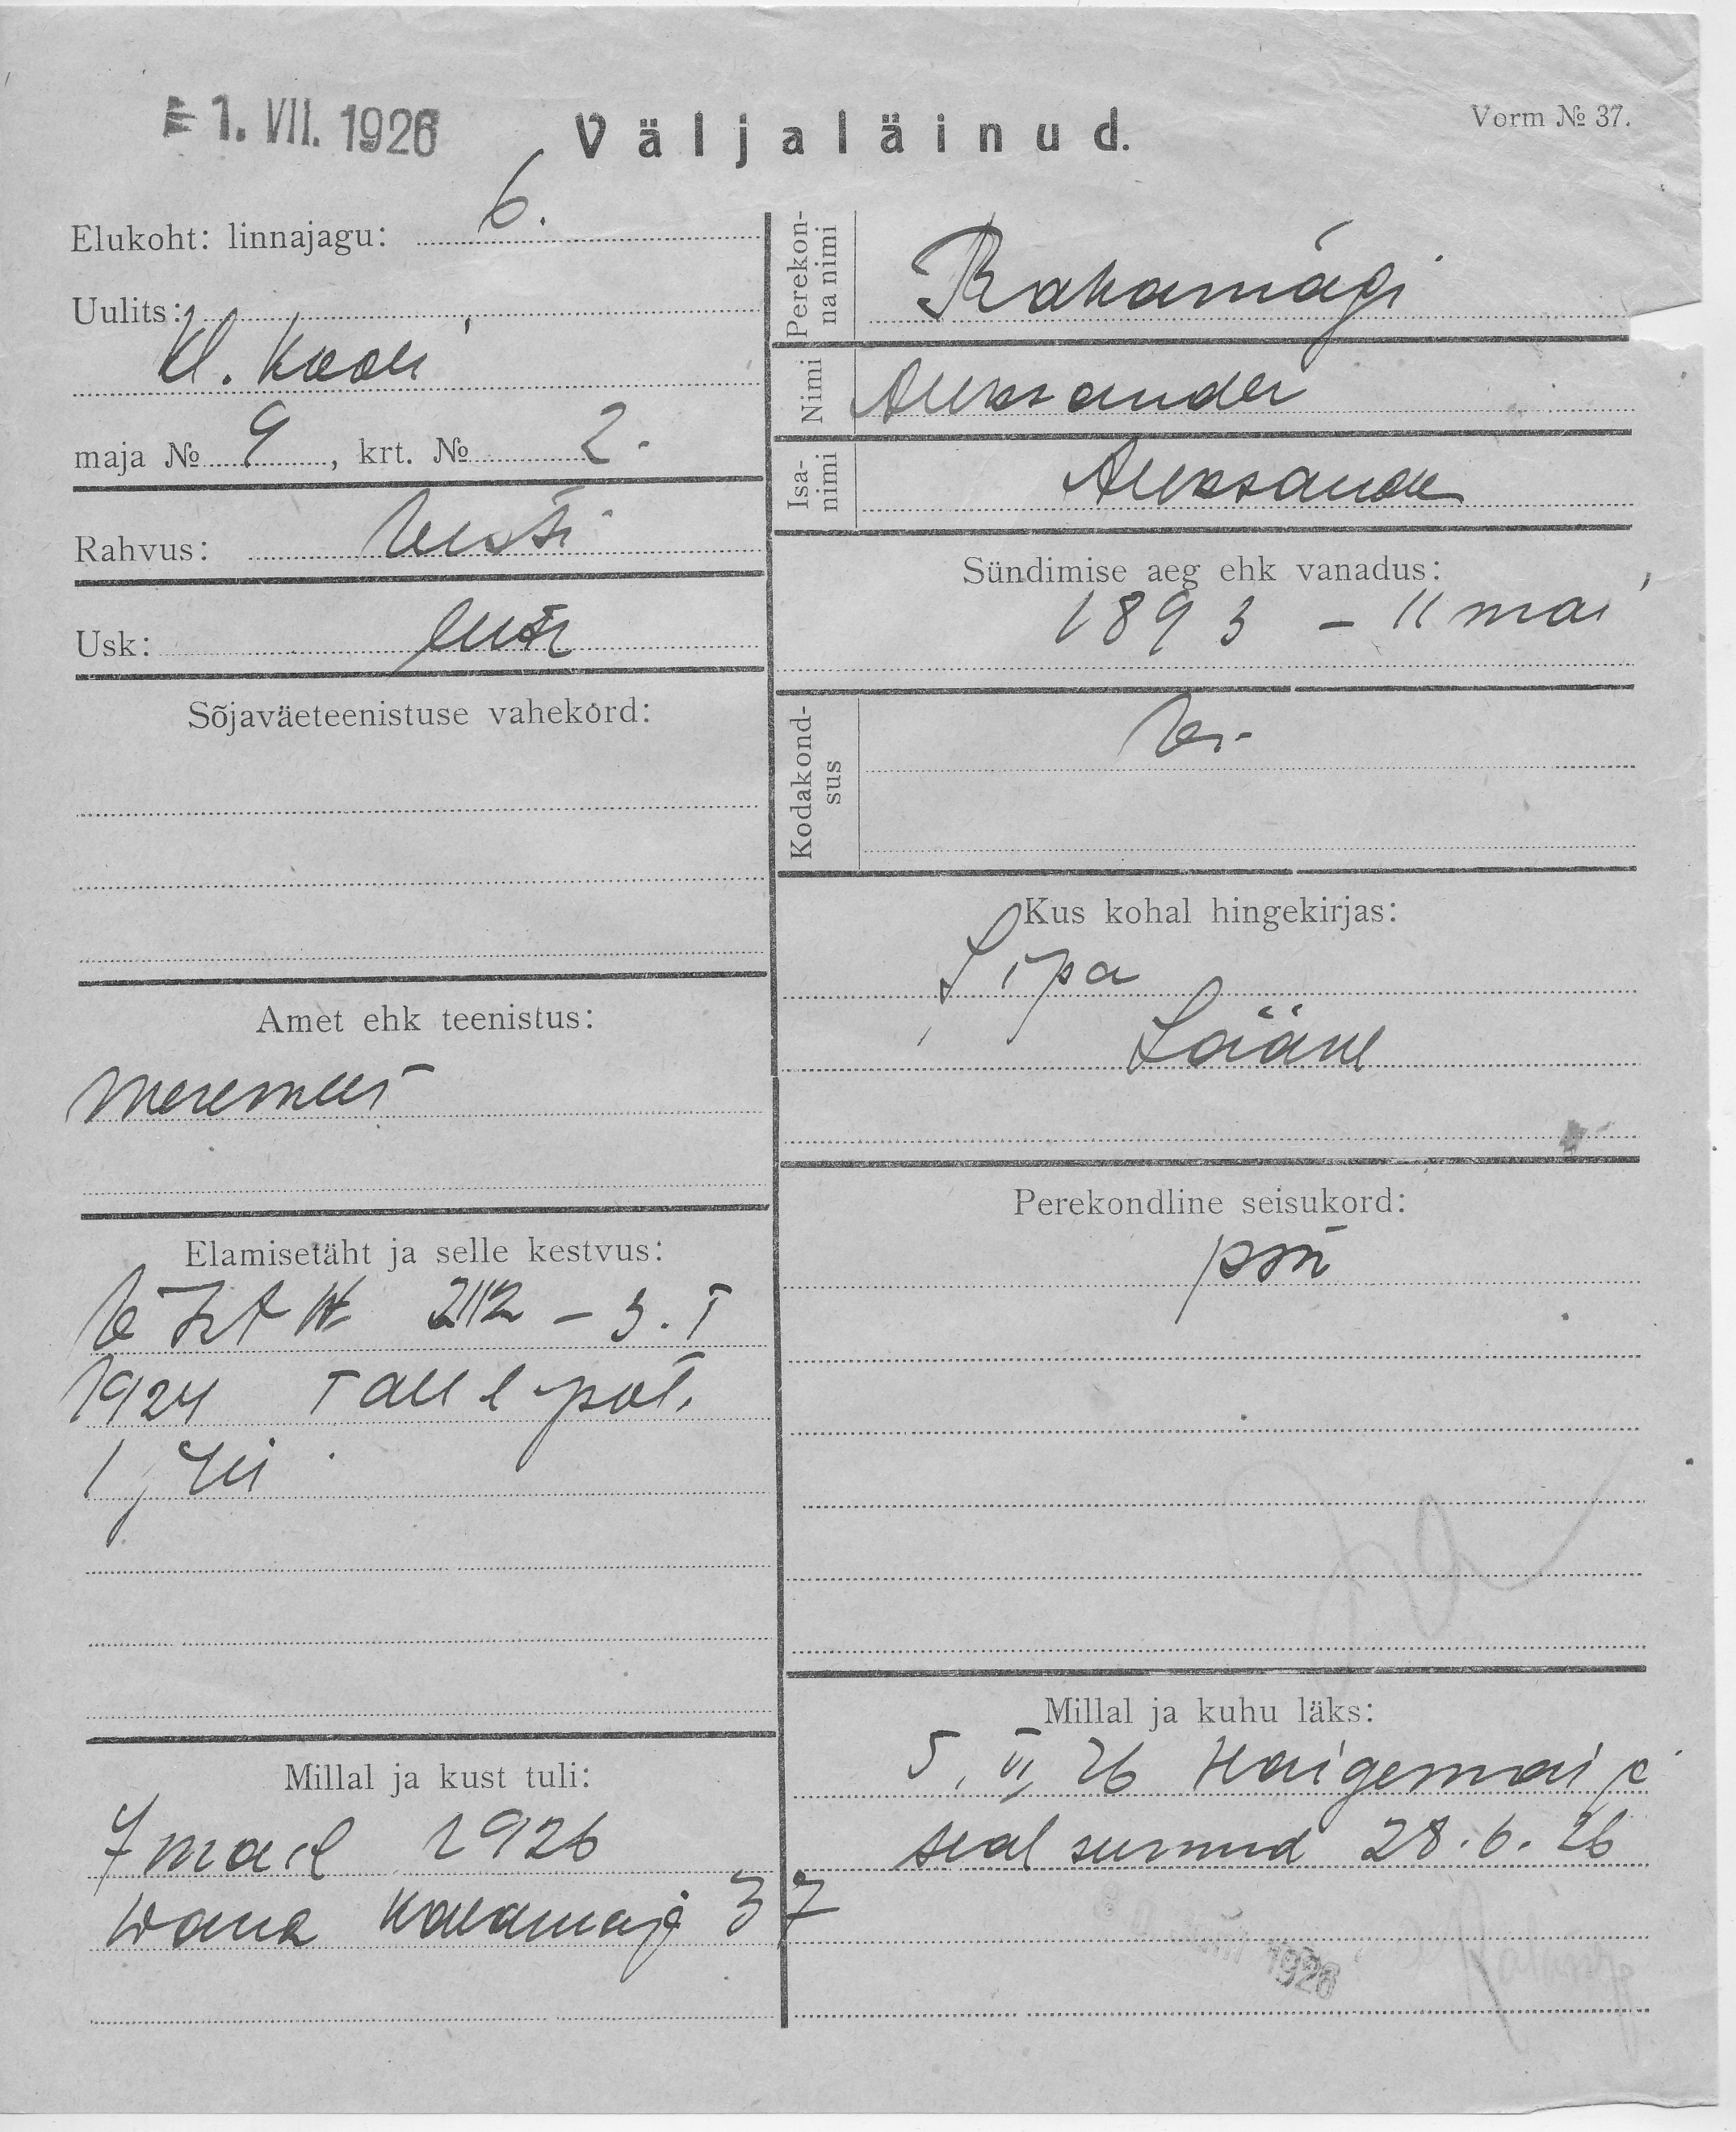 1. VII. 1926
Väljaläinud.
Vorm № 37.
Elukoht: linnajagu: 6.
Uulits:
Kl. Kooli
maja № 9, krt. № 2.
Rahvus: Eesti
Usk: luth
Sõjaväeteenistuse vahekord:
Amet ehk teenistus:
meremees
Elamisetäht ja selle kestvus:
2112 – 3. I
1924 Tall pol.
1 j
Millal ja kust tuli:
7 mail 1926
Wana Kalamaja 37
Perekonna nimi Rahamägi
Nimi Aleksander
Isanimi Aleksander
Sündimise aeg ehk vanadus:
1893 – 11 mai
Kodakondsus
Kus kohal hingekirjas:
Sipa
Lääne
Perekondline seisukord:
Millal ja kuhu läks:
5. VI, 26 Haigemaj
seal surnud 28.6.26
1926